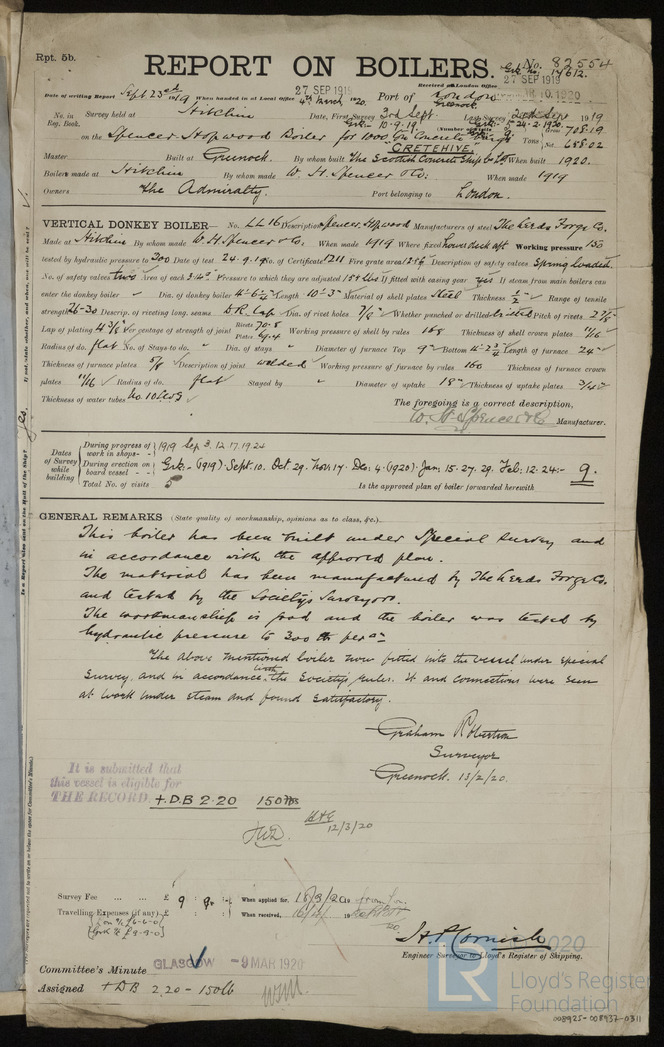 Rpt. 5b.
REPORT ON BOILERS.
No. 82554
Grk. No. 17612.
27 SEP 1919
27 SEP 1919
Received at London Office
MAR 10. 1920
Date of writing Report Sept 23rd 1919 When handed in at Local Office 4th March 1920. Port of London Greenock
No. in Reg. Book. Survey held at Hitchin Date, First Survey 3rd Sept. Last Survey 24th Sep 1919
Grk:- 10-9-19. Grk:- 24-2-1920.
on the Spencer Hopwood Boiler for 1000 Ton Concrete Barge (Number of Visits
"CRETEHIVE" Tons Gross 708.19 Net 658.02
Master Built at Greenock. By whom built The Scottish Concrete Ship Co Ld When built 1920.
Boilers made at Hitchin By whom made W. H. Spencer & Co: When made 1919
Owners The Admiralty. Port belonging to London.
VERTICAL DONKEY BOILER No. LL16 Description Spencer Hopwood Manufacturers of steel The Leeds Forge Co.
Made at Hitchin By whom made W. H. Spencer & Co. When made 1919 Where fixed House deck aft Working pressure 150
tested by hydraulic pressure to 300 Date of test 24.9.19 No. of Certificate 1211 Fire grate area Description of safety valves Spring loaded
No. of safety valves two Area of each 3.14" Pressure to which they are adjusted 155 lbs If fitted with easing gear yes If steam from main boilers can
enter the donkey boiler Dia. of donkey boiler 4'-6½" Length 10'-3" Material of shell plates Steel Thickness ½" Range of tensile
strength 26-30 Descrip. of riveting long. seams D.R. Lap Dia. of rivet holes 7/8" Whether punched or drilled drilled Pitch of rivets
Lap of plating 4 3/8" Per centage of strength of joint Rivets 70.8 Plates Working pressure of shell by rules 168 Thickness of shell crown plates 11/16"
Radius of do. flat No. of Stays to do. " Dia. of stays " Diameter of furnace Top 9" Bottom Length of furnace 24"
Thickness of furnace plates 5/8 Description of joint welded Working pressure of furnace by rules 160 Thickness of furnace crown
plates 11/16 Radius of do. flat Stayed by " Diameter of uptake 18" Thickness of uptake plates 3/4"
Thickness of water tubes No. 10 LSWG
The foregoing is a correct description,
W. H. Spencer & Co Manufacturer.
Dates of Survey while building
During progress of work in shops - - 1919 Sep 3. 12. 17. 19 24
During erection on board vessel - - - Grk:- (1919) Sept. 10. Oct. 29. Nov: 17. Dec: 4. (1920) Jan. 15. 27. 29. Feb: 12. 24:- 9.
Total No. of visits 5
Is the approved plan of boiler forwarded herewith
GENERAL REMARKS (State quality of workmanship, opinions as to class, &c.).
This boiler has been built under Special Survey and
in accordance with the approved plan.
The material has been manufactured by The Leeds Forge Co.
and tested by the Society's Surveyors.
The workmanship is good and the boiler was tested by
hydraulic pressure to 300 lbs per □"
The above mentioned boiler now fitted into the vessel under special
Survey, and in accordance with the Society's rules. It and connections were seen
at work under steam and found satisfactory.
Graham Robertson
Surveyor
Greenock. 13/2/20.
It is submitted that
this vessel is eligible for
THE RECORD. + D.B 2.20 150 lbs
12/3/20
Survey Fee ... ... £ 9 : 9 : -
When applied for. 18/3/20
Travelling Expenses (if any) £ : :
When received, 19
Lon a/c £6-6-0
Grk a/c £3-3-0
H. P. Cornish
Engineer Surveyor to Lloyd's Register of Shipping.
Committee's Minute GLASGOW - 9 MAR 1920
Assigned + DB 2.20 - 150 lb
LR
Lloyd's Register
Foundation
008925-008937-0311